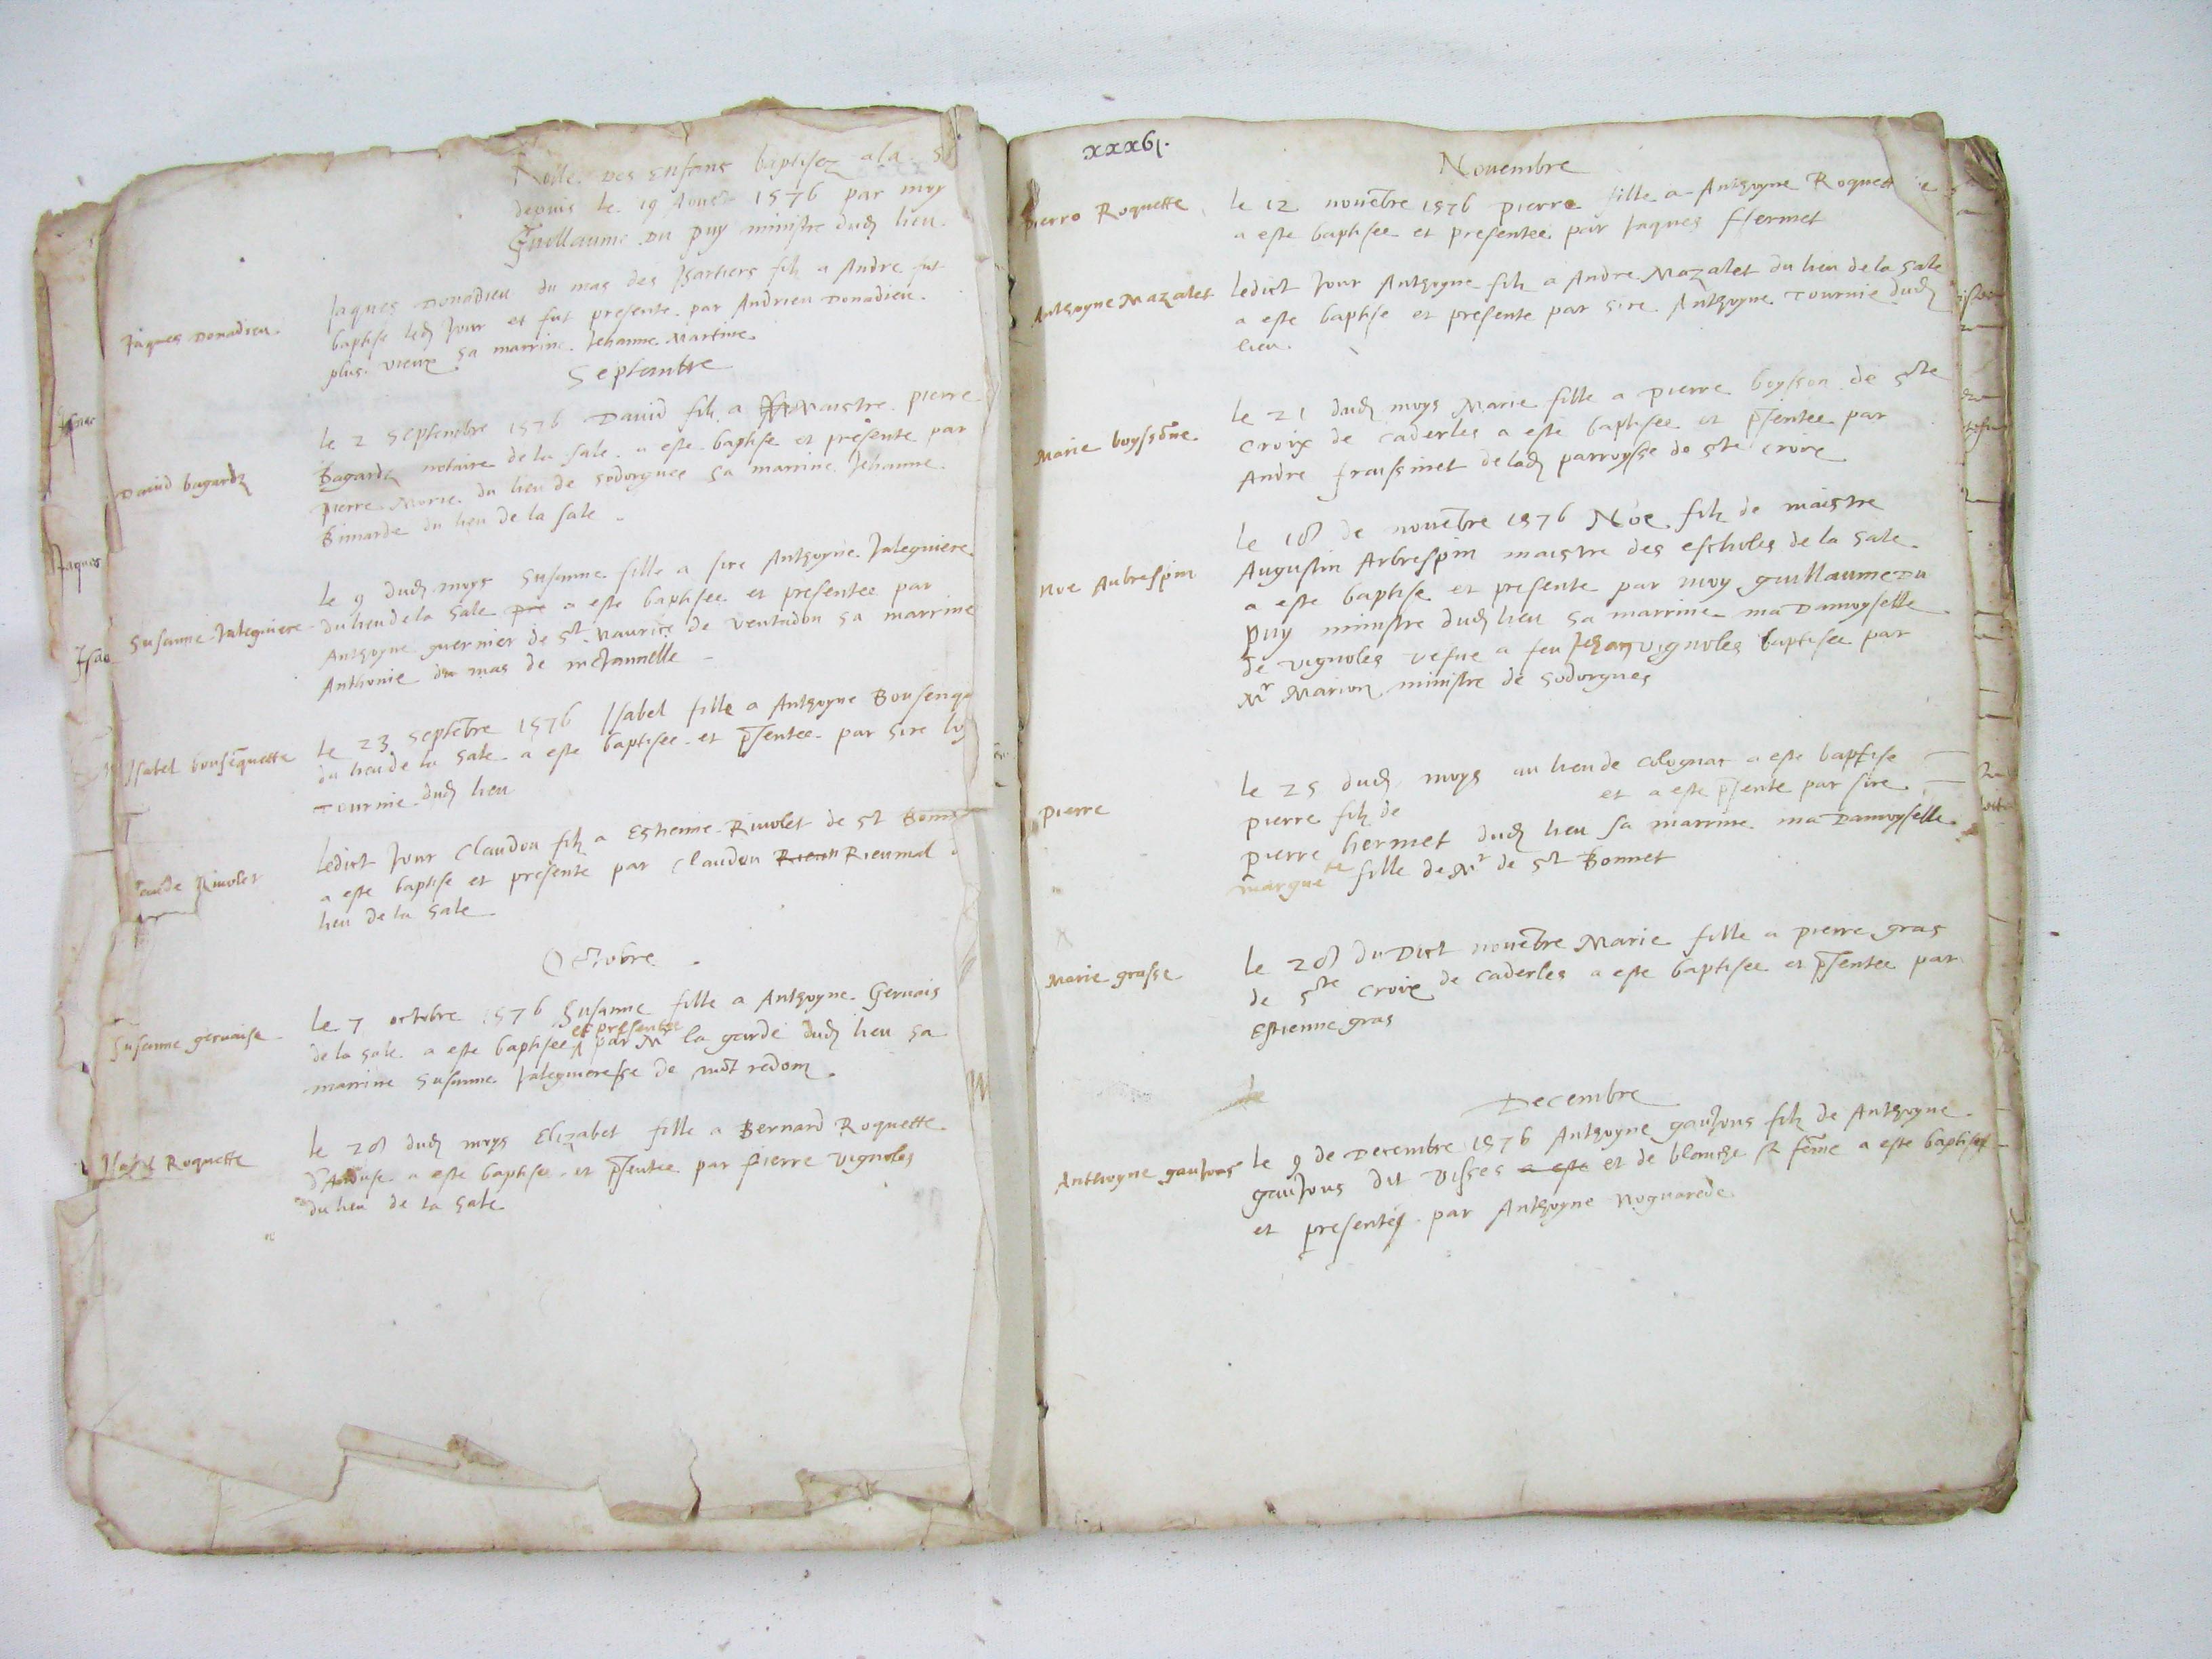 Rolle Des Enfans baptisez a la
depuis le 19 Aoust 1576 par moy
Guillaume Du puy ministre dud lieu
Jaques Donadieu
Jaques Donadieu du mas des filz a Andre fut
baptise led Jour et fut presente par Andrieu Donadieu
plus vieux sa marrine Jehanne Martine
Septembre
David bagardz
le 2 Septembre 1576 David filz a Maistre pierre
Bagardz notaire de la sale a este baptise et presente par
pierre Morie du lieu de sodorgues sa marrine Jehanne
Bimarde du lieu de la sale
Susanne Jaleguiere
le 9 dud moys Susanne fille a sire Anthoyne Jaleguiere
du lieu de la sale pre a este baptisee et presentee par
Anthoyne guernier de st Maurice de Ventadou sa marrine
Anthonie du mas de
Isabel bousēquette
le 23 septēbre 1576 Isabel fille a Anthoyne
du lieu de la sale a este baptisee et p̄sentee par sire
Tournie dud lieu
Rivolet
ledict Jour Claudou filz a Estienne Rivolet de st
a este baptise et presente par Claudou Rieumal
lieu de la sale
Octobre
Susanne gervaise
le 7 octobre 1576 Susanne fille a Anthoyne Gervais
et presentee
de la sale a este baptisee par Mr la garde dud lieu sa
marrine Susanne Jalegueresse de mōt redon
Roquette
le 28 dud moys Elizabet fille a Bernard Roquette
a este baptisee et p̄sentee par pierre Vignoles
du lieu de la sale
xxxvj.
Novembre
pierre Roquette
le 12 novēbre 1576 pierre fille a Anthoyne Roquette
a este baptisee et presentee par Jaques ffermet
Anthoyne Mazalet
ledict Jour Anthoyne filz a Andre Mazalet du lieu de la sale
a este baptise et presente par sire Anthoyne Tournie dud
lieu
Marie boyssōne
le 21 dud moys Marie fille a pierre boysson de ste
Croix de caderles a este baptisee et p̄sentee par
Andre fraissinet de lad parroysse de ste croix
Noe Aubrespin
le 18 de novēbre 1576 Noe filz de maistre
Augustin Arbrespin maistre des escholes de la sale
a este baptise et presente par moy guillaume Du
puy ministre dud lieu sa marrine ma Damoyselle
de vignoles vefue a feu Jehan vignoles baptisee par
Mr Marion ministre de sodorgues
Pierre
le 25 dud moys au lieu de Colognac a este baptise
pierre filz de et a este p̄sente par sire
pierre hermet dud lieu sa marrine ma Damoyselle
marguete fille de Mr de st Bonnet
Marie grasse
le 28 du Dict novēbre Marie fille a pierre gras
de ste croix de caderles a este baptisee et p̄sentee par
Estienne gras
le
Decembre
Anthoyne gaujous
le 9 de Decembre 1576 Anthoyne gaujous filz de Anthoyne
gaujous dit Visses a este et de blanche sa fēme a este baptise
et presente par Anthoyne noguarede